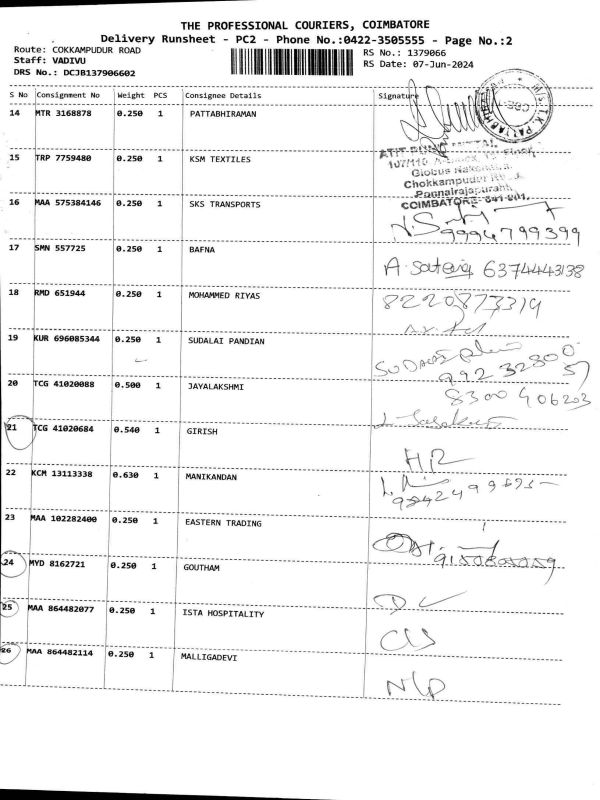 THE PROFESSIONAL COURIERS, COIMBATORE
Delivery Runsheet - PC2 - Phone No.:0422-3505555 - Page No.:2
Route: COKKAMPUDUR ROAD
RS No.: 1379066
Staff: VADIVU
RS Date: 07-Jun-2024
DRS No.: DCJB137906602
S No Consignment No Weight PCS Consignee Details Signature
14 MTR 3168878 0.250 1 PATTABHIRAMAN
15 TRP 7759480 0.250 1 KSM TEXTILES
Chokkampudur
Ponnairajapuram,
COIMBATORE- 641 001.
16 MAA 575384146 0.250 1 SKS TRANSPORTS
9994799399
17 SMN 557725 0.250 1 BAFNA
6374443138
18 RMD 651944 0.250 1 MOHAMMED RIYAS
8220873319
19 KUR 696085344 0.250 1 SUDALAI PANDIAN
20 TCG 41020088 0.500 1 JAYALAKSHMI
8300406203
21 TCG 41020684 0.540 1 GIRISH
22 KCM 13113338 0.630 1 MANIKANDAN
23 MAA 102282400 0.250 1 EASTERN TRADING
24 MYD 8162721 0.250 1 GOUTHAM
DC
25 MAA 864482077 0.250 1 ISTA HOSPITALITY
26 MAA 864482114 0.250 1 MALLIGADEVI